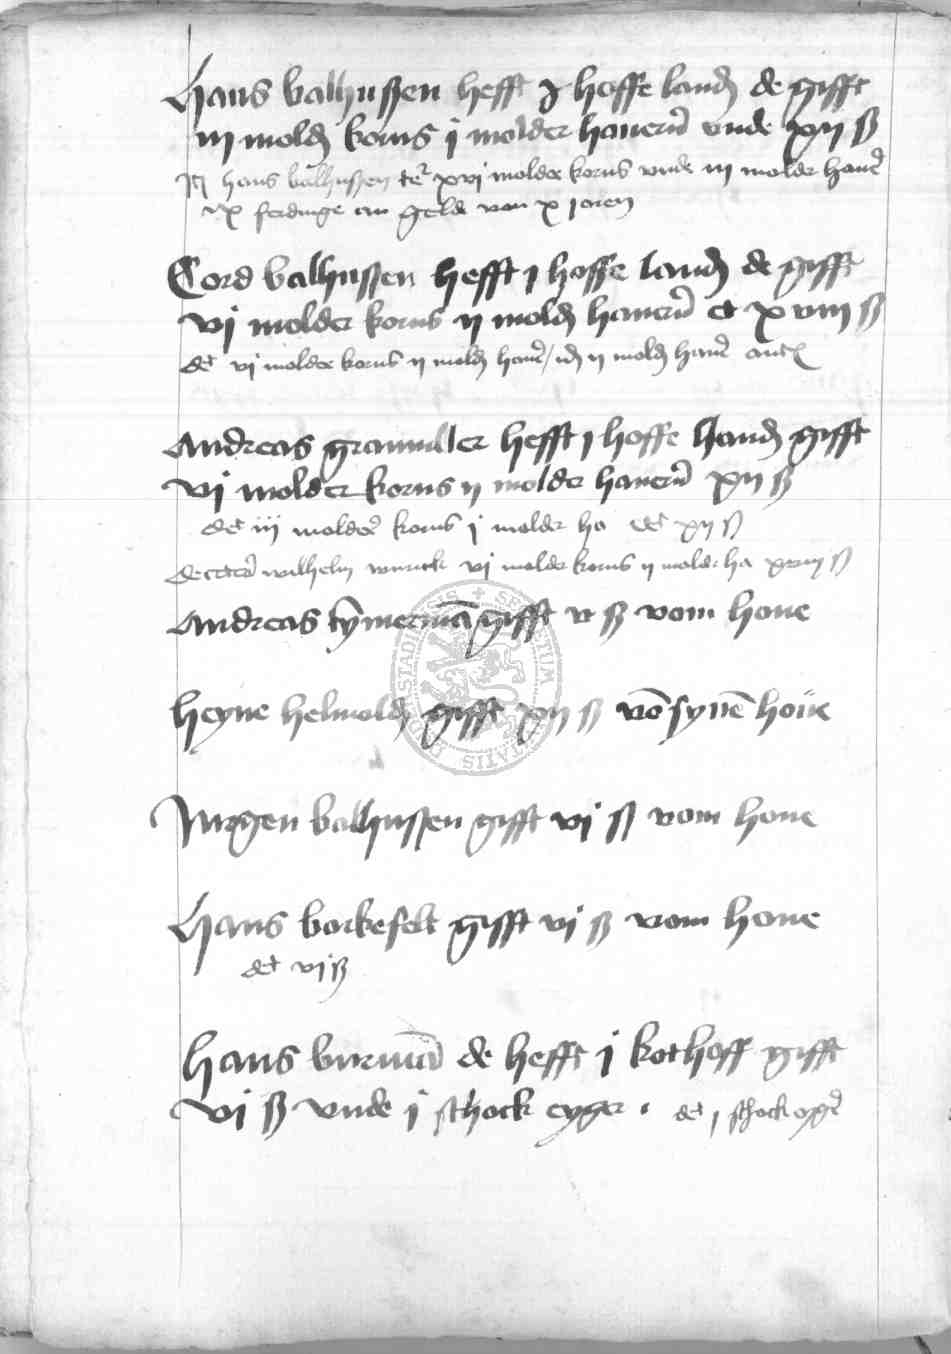 Hans balhussen hefft j hoffe landß de gifft
iij moldß korns j molder haverñ vnde xij ß
Itē hans balhussen teʳ xvj molder korns vnde iij molder havēr
ix ferdinge an gelde von x jaren
Cord balhussen hefft j hoffe landß de gifft
vj molder korns ij moldß haverñ et xviij ß
dēt vj molder korns ij moldß havēr / ij moldß havēr
Andreas gramuller hefft j hoffe landß gifft
vj molder korns ij molder haverñ xij ß
dēt iij molder korns j molder ha dēt xij ß
wilhelm vj molder korns ij molder ha ß
Andreas tȳmermā gifft v ß vom hove
heyne helmoldß gifft xij ß vō synē hove
Jurgen balhussen gifft vj ß vom hove
Hans borkefelt gifft vj ß vom hove
dēt vj ß
hans burmā de hefft j kothoff gifft
vj ß vnde j schock eyger . dēt j schock eygēr
SIGILLUM SECRETUM